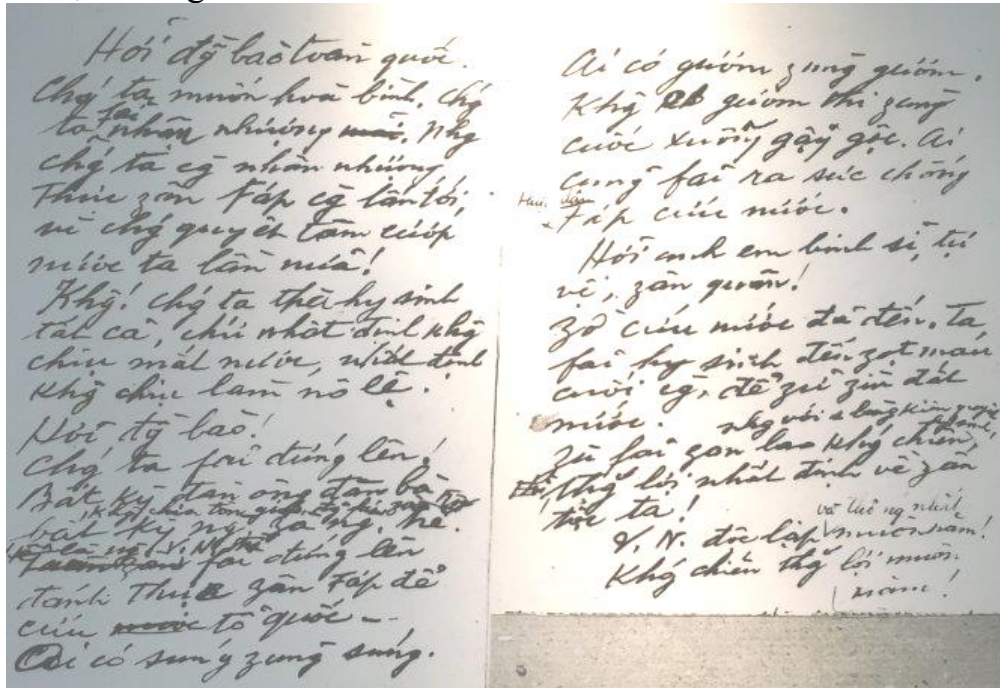 Hỡi đg̃ bào toàn quốc.
Chǵ ta muốn hoà bình, chǵ
ta fải nhân nhượng. Nhg
chǵ ta cg̀ nhân nhượng
Thực zân Fáp cg̀ lấn tới,
vì chǵ quyết tâm cướp
nước ta lần nữa!
Khg̃! chǵ ta thà hy sinh
tất cả, chứ nhất định khg̃
chịu mất nước, nhất định
khg̃ chịu làm nô lệ.
Hỡi đg̀ bào!
Chǵ ta fải đứng lên!
Bất kỳ đàn ông đàn bà
bất kỳ ng
fải đứng lên
đánh thực zân Fáp để
cứu tổ quốc -
Ai có súng zùng súng.
Ai có gươm zùng gươm,
Khg̃ có gươm thì zùng
cuốc xuổng gậy gộc. Ai
cũng fải ra sức chống
Fáp cứu nước.
Hỡi anh em binh sĩ, tự
vệ, zân quân!
Zờ cứu nước đã đến. Ta
fải hy sinh đến zọt máu
cuối cg̀, để zữ zìn đất
nước.
Zù fải zan lao khǵ chiến,
thǵ lợi nhất định về zân
tộc ta!
và thống nhất
V. N. độc lập muôn năm!
Khǵ chiến thǵ lợi muôn
năm!